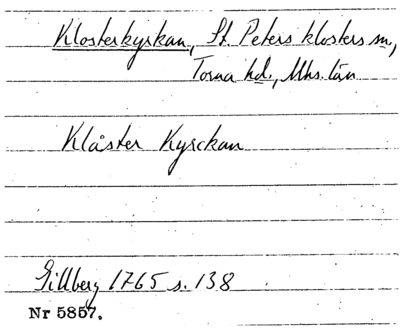 Klosterkyrkan, St. Peters klosters sn,
Torna hd., Mhs. län
Klåster Kyrckan
Gillberg 1765 s. 138
Nr 5857.